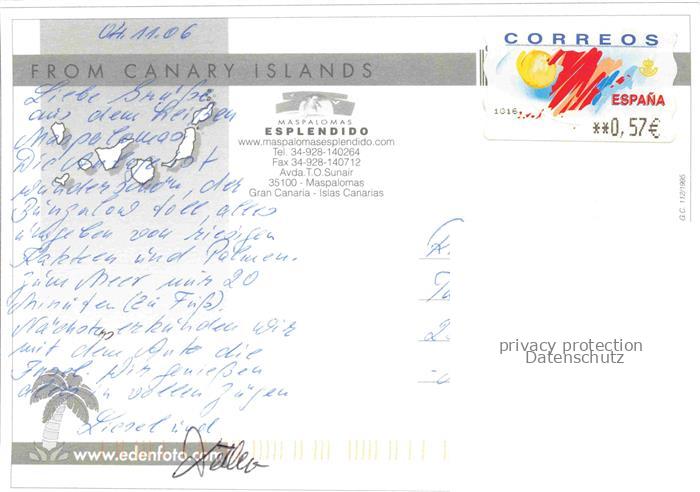 04.11.06
CORREOS
ESPAÑA
1016
**0,57€
FROM CANARY ISLANDS
Liebe Grüße
aus dem heißen
Maspalomas
MASPALOMAS
ESPLENDIDO
www.maspalomasesplendido.com
Tel. 34-928-140264
Fax 34-928-140712
Avda.T.O.Sunair
35100 - Maspalomas
Gran Canaria - Islas Canarias
G.C. 112/1995
Die ist
wunderschön, der
Bungalow toll, alles
umgeben von riesigen
Kakteen und Palmen.
Zum Meer nur 20
Minuten (zu Fuß).
Nächstens erkunden wir
mit dem Auto die
Insel. Wir genießen
alles in vollen Zügen
Liesel und
privacy protection
Datenschutz
www.edenfoto.com